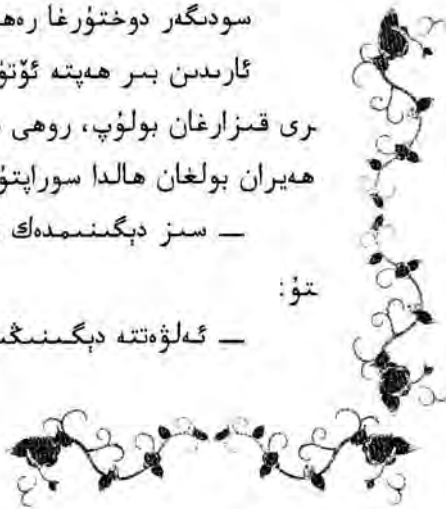 سودىگەر دوختۇرغا رەھ
ئارىدىن بىر ھەپتە ئۆتۈ
ىرى قىزارغان بولۇپ، روھى
ھەيران بولغان ھالدا سوراپتۇ
— سىز دېگىنىمدەك
ىتۇ:
— ئەلۋەتتە دېگىنىڭى